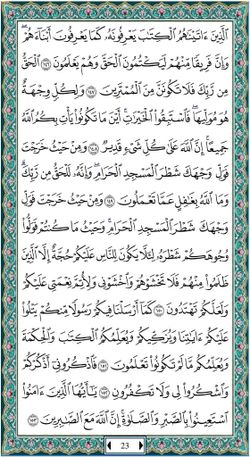 ٱلَّذِينَ ءَاتَيْنَٰهُمُ ٱلْكِتَٰبَ يَعْرِفُونَهُۥ كَمَا يَعْرِفُونَ أَبْنَآءَهُمْ
وَإِنَّ فَرِيقًا مِّنْهُمْ لَيَكْتُمُونَ ٱلْحَقَّ وَهُمْ يَعْلَمُونَ ١٤٦ ٱلْحَقُّ
مِن رَّبِّكَ فَلَا تَكُونَنَّ مِنَ ٱلْمُمْتَرِينَ ١٤٧ وَلِكُلٍّ وِجْهَةٌ
هُوَ مُوَلِّيهَا فَٱسْتَبِقُوا۟ ٱلْخَيْرَٰتِ أَيْنَ مَا تَكُونُوا۟ يَأْتِ بِكُمُ ٱللَّهُ
جَمِيعًا إِنَّ ٱللَّهَ عَلَىٰ كُلِّ شَىْءٍ قَدِيرٌ ١٤٨ وَمِنْ حَيْثُ خَرَجْتَ فَوَلِّ
وَجْهَكَ شَطْرَ ٱلْمَسْجِدِ ٱلْحَرَامِ وَإِنَّهُۥ لَلْحَقُّ مِن رَّبِّكَ
وَمَا ٱللَّهُ بِغَٰفِلٍ عَمَّا تَعْمَلُونَ ١٤٩ وَمِنْ حَيْثُ خَرَجْتَ فَوَلِّ
وَجْهَكَ شَطْرَ ٱلْمَسْجِدِ ٱلْحَرَامِ وَحَيْثُ مَا كُنتُمْ فَوَلُّوا۟
وُجُوهَكُمْ شَطْرَهُۥ لِئَلَّا يَكُونَ لِلنَّاسِ عَلَيْكُمْ حُجَّةٌ إِلَّا ٱلَّذِينَ
ظَلَمُوا۟ مِنْهُمْ فَلَا تَخْشَوْهُمْ وَٱخْشَوْنِى وَلِأُتِمَّ نِعْمَتِى عَلَيْكُمْ
وَلَعَلَّكُمْ تَهْتَدُونَ ١٥٠ كَمَآ أَرْسَلْنَا فِيكُمْ رَسُولًا مِّنكُمْ يَتْلُوا۟
عَلَيْكُمْ ءَايَٰتِنَا وَيُزَكِّيكُمْ وَيُعَلِّمُكُمُ ٱلْكِتَٰبَ وَٱلْحِكْمَةَ
وَيُعَلِّمُكُم مَّا لَمْ تَكُونُوا۟ تَعْلَمُونَ ١٥١ فَٱذْكُرُونِىٓ أَذْكُرْكُمْ
وَٱشْكُرُوا۟ لِى وَلَا تَكْفُرُونِ ١٥٢ يَٰٓأَيُّهَا ٱلَّذِينَ ءَامَنُوا۟
ٱسْتَعِينُوا۟ بِٱلصَّبْرِ وَٱلصَّلَوٰةِ إِنَّ ٱللَّهَ مَعَ ٱلصَّٰبِرِينَ ١٥٣
23